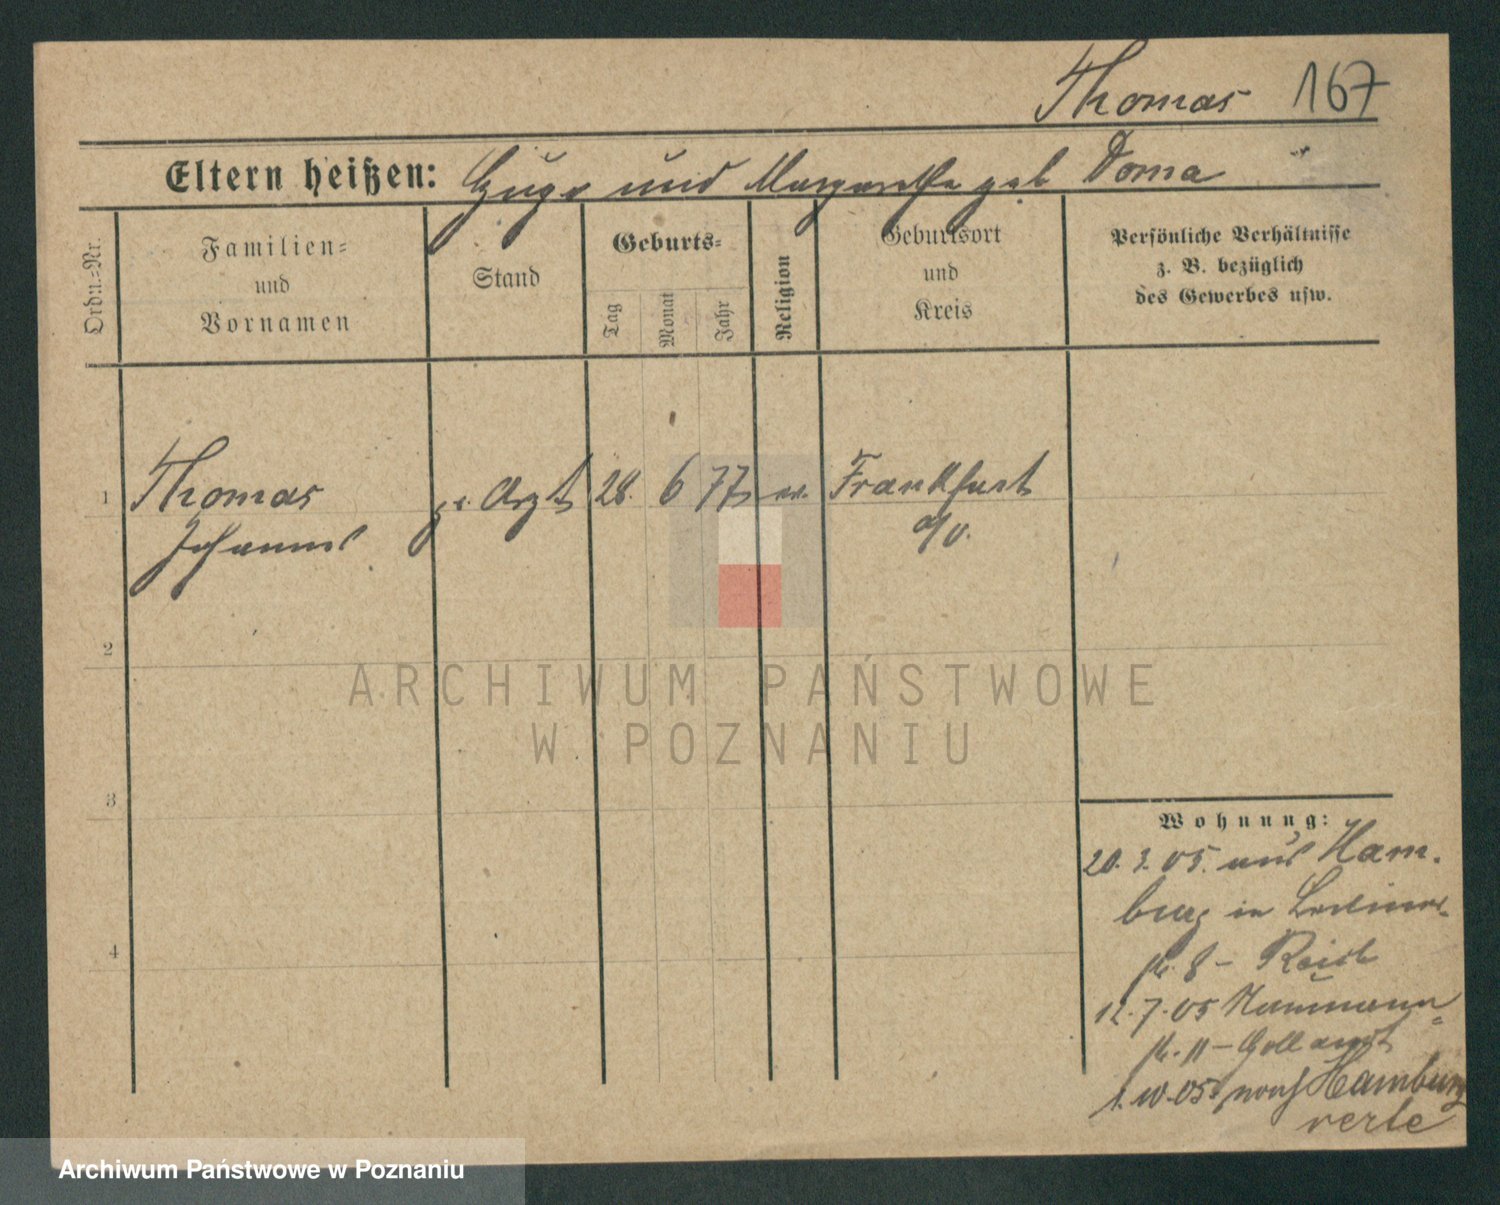 Thomas 167
Eltern heißen: Hugo und Margarethe geb Doma
Ordn.-Nr.
Familien-
und
Vornamen
Stand
Geburts-
Tag
Monat
Jahr
Religion
Geburtsort
und
Kreis
Persönliche Verhältnisse
z. B. bezüglich
des Gewerbes usw.
1 Thomas Arzt 28. 6 77 ev. Frankfurt
Johannes a/O.
2
ARCHIWUM PAŃSTWOWE
W POZNANIU
3
Wohnung:
20. 3. 05. aus Ham-
burg in Berliner-
str. 8 –
4
12. 7. 05 Naumann-
str. 11 –
1. 10. 05 nach Hamburg
Archiwum Państwowe w Poznaniu